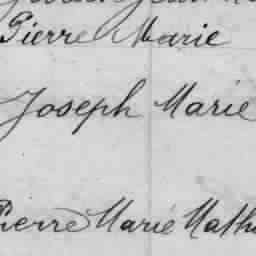 Pierre Marie
Joseph Marie
Pierre Marie Math